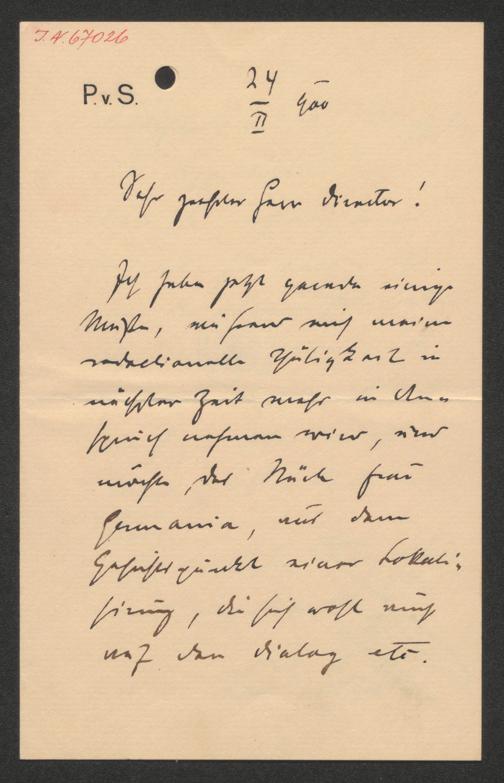 J.N. 67026
P. v. S.
24
II 900
Sehr geehrter Herr Director!
Ich habe jetzt gerade einige
Muße, während mich meine
redactionelle Thätigkeit in
nächster Zeit mehr in An-
spruch nehmen wird, und
möchte das Stück Frau
Germania, aus dem
Gesichtspunkt einer Lokali-
sirung, die sich wohl auch
auf den Dialog etc.